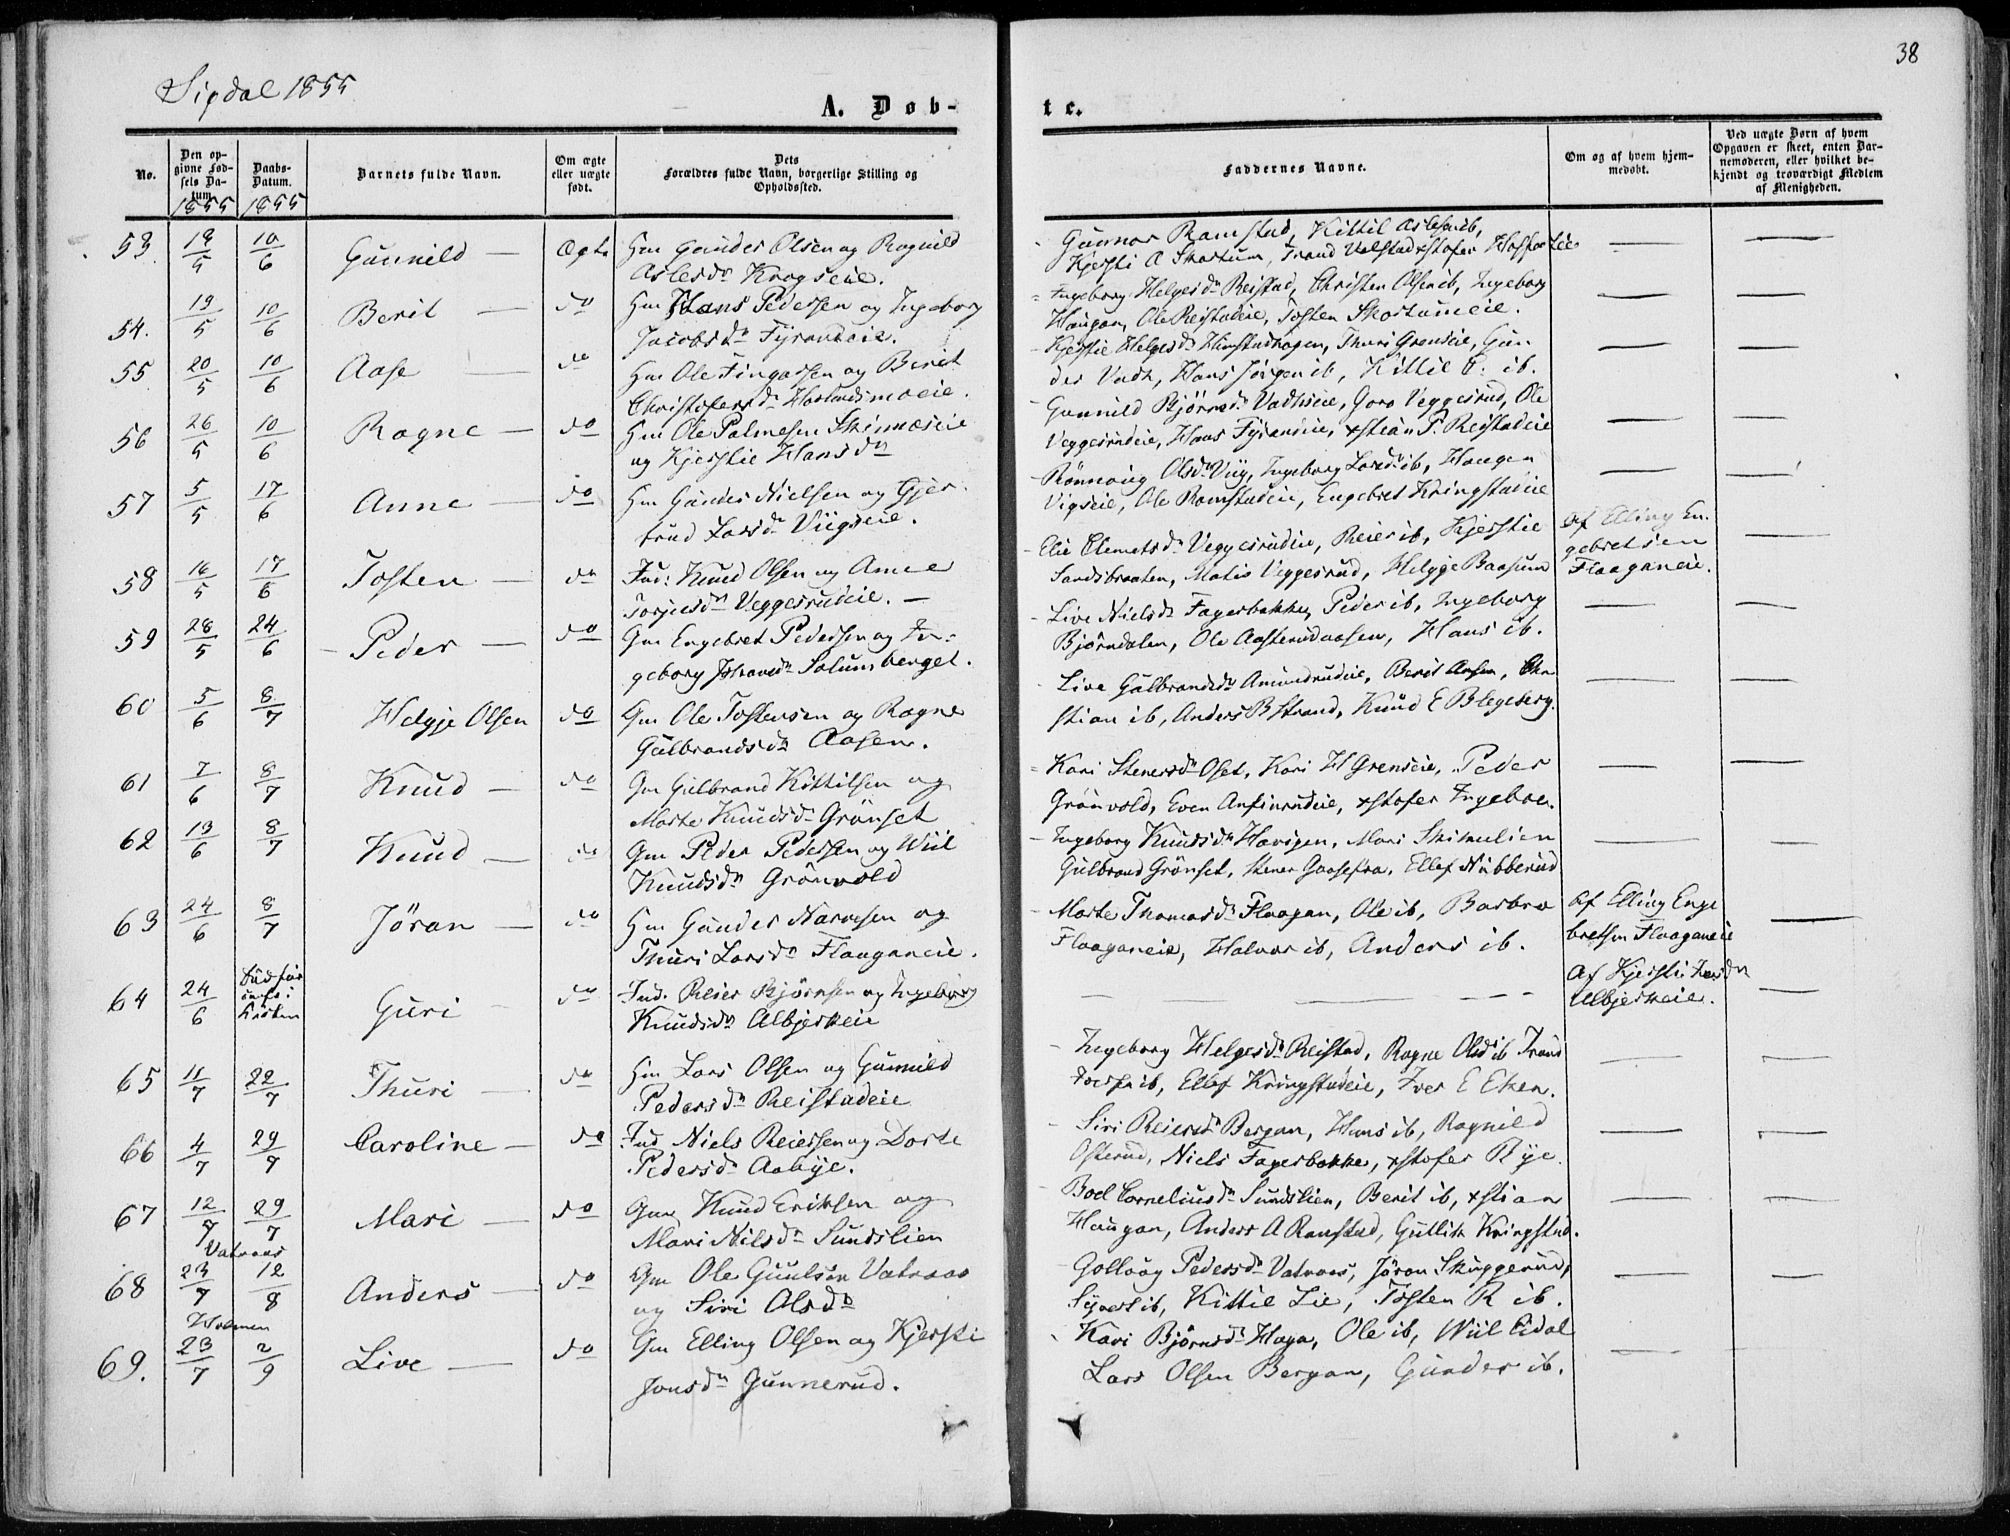 38
Sigdal 1855
A. Døb-
te.
No.
Den op-
givne Fød-
sels Da-
tum.
1855
Daabs-
Datum.
1855
Barnets fulde Navn.
Om ægte
eller uægte
født.
Dets
Forældres fulde Navn, borgerlige Stilling og
Opholdssted.
Faddernes Navne.
Om og af hvem hjem-
medøbt.
Ved uægte Børn af hvem
Opgaven er skeet, enten Bar-
nemoderen, eller hvilket be-
kjendt og troværdigt Medlem
af Menigheden.
53. 10/6 Gunnild — Ægte Hm Gunder Olsen og Ragnild
Aslesdr Krogseie.
Gunnar Ramstad, Kittil Aslesen ib,
Kjersti A Skartum, Trond Velstad xstofer
54. 19/5 10/6 Berit — do Hm Hans Pedersen og Ingeborg
Jacobsdr
Ingeborg Helgesdr Reistad, Christen Olsen ib, Ingeborg
Haugan, Ole Reistadeie, Tosten Skartumeie.
55 20/5 10/6 Aase — do Hm Ole Fingarsen og Berit
Christofersdr
Kjerstie Helgesdr Himstadhagen, Thuri Grenseie, Gun
der Vadh, Hans Jörgen ib, Kittil G. ib.
56 26/5 10/6 Ragne — do Hm Ole Palmesen
og Kjerstie Hansdr
Gunnild Björnsdr Vadhseie, Goro Veggesrud, Ole
Veggesrudeie, Hans xstian P. Reistadeie
57 5/5 17/6 Anne — do Hm Gunder Nielsen og Gjer
trud Larsdr Viigseie.
Rönnaug Olsdr Viig, Ingeborg Larsdr ib, Haagen
Vigseie, Ole Ramstadeie, Engebret Kringstadeie
58 16/5 17/6 Tosten — do Ind: Knud Olsen og Anne
Torjusdr Veggesrudeie. —
Elie Clemetsdr Veggesrudeie, Reier ib, Kjerstie
Sandsbraaten, Matis Veggesrud, Helgje Baasum
Af Elling En-
gebretsen
Flaaganeie.
59 28/5 24/6 Peder — do Gm Engebret Pedersen og In-
geborg Solumsberget.
Live Nielsdr Fagerbakke, Peder ib, Ingeborg
Björndalen, Ole Aasterudaasen, Hans ib.
60 5/6 8/7 Helgje Olsen do Gm Ole Tostensen og Ragne
Gulbrandsdr Aasen.
Live Gulbrandsdr Amundrudeie, Berit Aasen, Chri
stian ib, Anders B Strand, Knud E Blegeberg.
61 7/6 8/7 Knud — do Gm Gulbrand Kittilsen og
Marte Knudsdr Grönset
Kari Stenersdr Oset, Kari H Grenseie, Peder
Grönvold, Even Anfinrudeie, xstofer
62 13/6 8/7 Knud — do Gm Peder Pedersen og Wiil
Knudsdr Grönvold
Ingeborg Knudsdr Haavigen, Mari Skimulien
Gulbrand Grönset, Stener Ellef Nubberud
63 24/6 8/7 Jöran — do Hm Gunder Narvesen og
Thuri Larsdr Flaaganeie.
Marte Thomasdr Flaagan, Ole ib, Barbro
Flaaganeie, Halvor ib, Anders ib.
Af Elling Enge
bretsen Flaaganeie
64 24/6 Guri — do Ind. Reier Björnsen og Ingeborg
Knudsdr Albjerkeie
Af Kjersti
Albjerkeie.
65 11/7 22/7 Thuri — do Hm Lars Olsen og Gunnild
Pedersdr Reistadeie
Ingeborg Helgesdr Reistad, Ragne Olsdr ib Trond
Iversen ib, Ellef Kringstadeie, Iver E Eken.
66 4/7 29/7 Caroline — do Ind Niels Reiersen og Dorte
Pedersdr Aabye.
Siri Reiersdr Bergan, Hans ib, Ragnild
Osterud, Niels Fagerbakke, xstofer Bye.
67 12/7 29/7 Mari — do Gm Knud Eriksen og
Mari Nilsdr Sundslien
Boel Corneliusdr Sundslien, Berit ib, xstian
Haugan, Anders A Ramstad, Gullik Kringstad.
Vatnaas
68 23/7 12/8 Anders — do Gm Ole Guulsen Vatnaas
og Siri Olsdr
Gollaug Pedersdr Vatnaas, Jöran Skuggerud,
Syvert ib, Kittil Lie, Tosten R ib.
Holmen
69. 23/7 2/9 Live — do Gm Elling Olsen og Kjersti
Jonsdr Gunnerud.
Kari Björnsdr Haga, Ole ib, Wiil Eidal
Lars Olsen Bergan, Gunder ib.